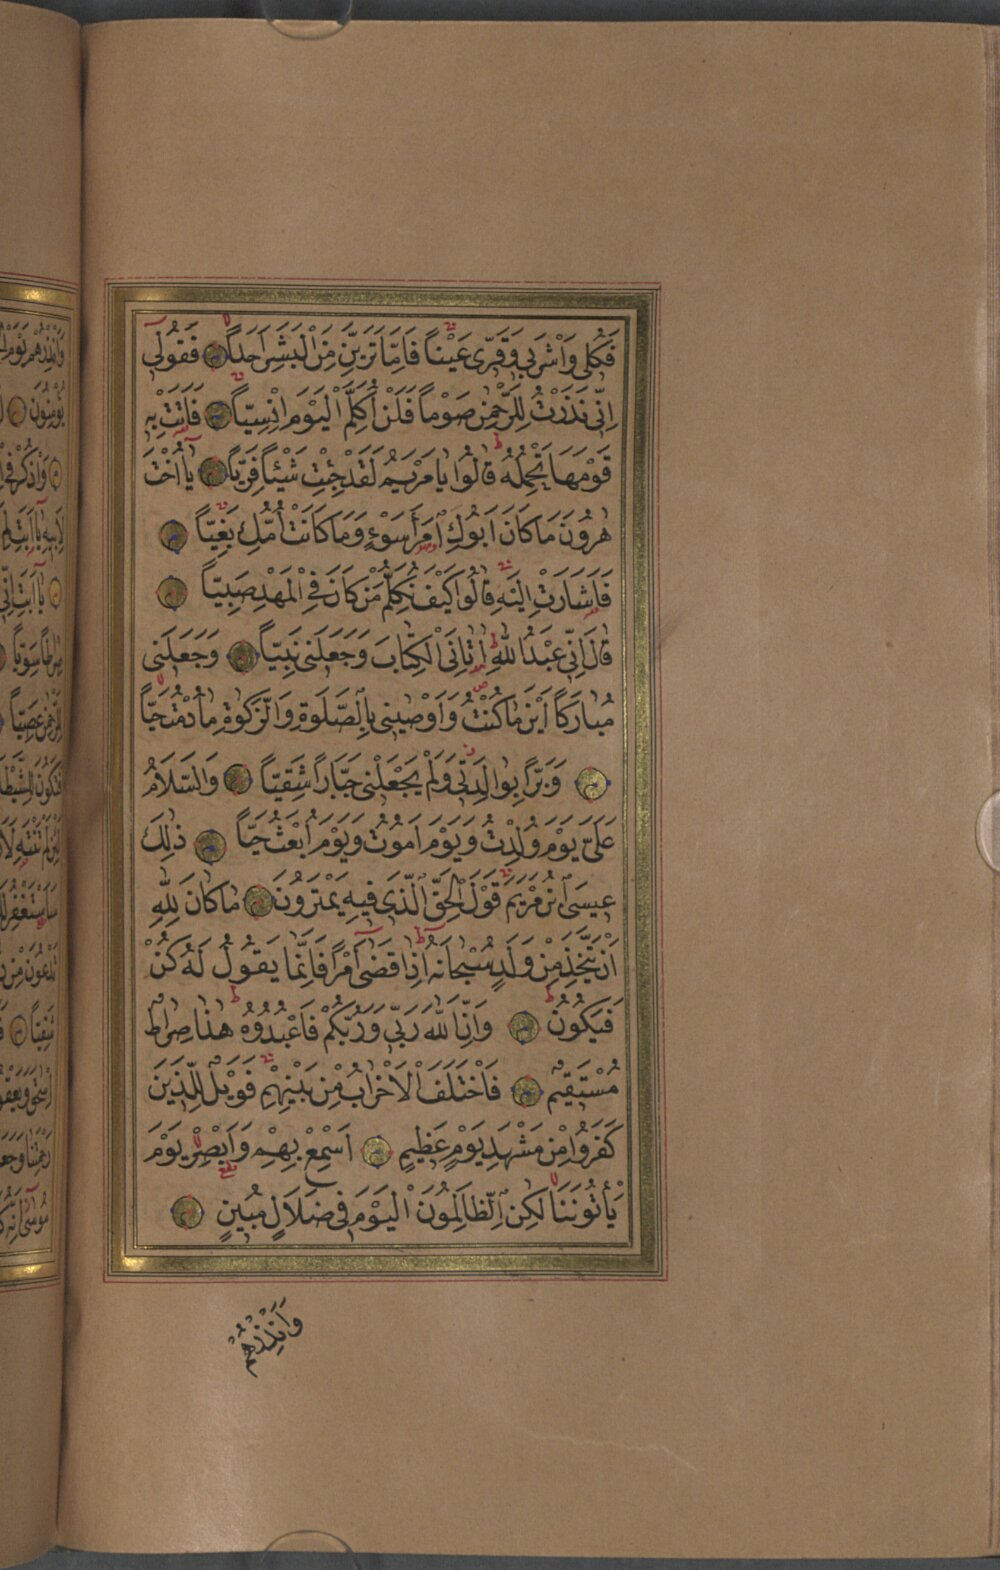 فَكُلِى وَاشْرَبِى وَقَرِّى عَيْناً فَاِمَّا تَرَيِنَّ مِنَ الْبَشَرِ اَحَداً فَقُولِى
اِنِّى نَذَرْتُ لِلرَّحْمٰنِ صَوْماً فَلَنْ اُكَلِّمَ الْيَوْمَ اِنْسِيّاً فَاَتَتْ بِهِ
قَوْمَهَا تَحْمِلُهُ قَالُوا يَا مَرْيَمُ لَقَدْ جِئْتِ شَيْئاً فَرِيّاً يَا اُخْتَ
هٰرُونَ مَا كَانَ اَبُوكِ امْرَاَ سَوْءٍ وَمَا كَانَتْ اُمُّكِ بَغِيّاً
فَاَشَارَتْ اِلَيْهِ قَالُوا كَيْفَ نُكَلِّمُ مَنْ كَانَ فِى الْمَهْدِ صَبِيّاً
قَالَ اِنِّى عَبْدُ اللّٰهِ اٰتَانِىَ الْكِتَابَ وَجَعَلَنِى نَبِيّاً وَجَعَلَنِى
مُبَارَكاً اَيْنَ مَا كُنْتُ وَاَوْصَانِى بِالصَّلٰوةِ وَالزَّكٰوةِ مَا دُمْتُ حَيّاً
وَبَرّاً بِوَالِدَتِى وَلَمْ يَجْعَلْنِى جَبَّاراً شَقِيّاً وَالسَّلَامُ
عَلَىَّ يَوْمَ وُلِدْتُ وَيَوْمَ اَمُوتُ وَيَوْمَ اُبْعَثُ حَيّاً ذٰلِكَ
عِيسَى ابْنُ مَرْيَمَ قَوْلَ الْحَقِّ الَّذِى فِيهِ يَمْتَرُونَ مَا كَانَ لِلّٰهِ
اَنْ يَتَّخِذَ مِنْ وَلَدٍ سُبْحَانَهُ اِذَا قَضٰى اَمْراً فَاِنَّمَا يَقُولُ لَهُ كُنْ
فَيَكُونُ وَاِنَّ اللّٰهَ رَبِّى وَرَبُّكُمْ فَاعْبُدُوهُ هٰذَا صِرَاطٌ
مُسْتَقِيمٌ فَاخْتَلَفَ الْاَحْزَابُ مِنْ بَيْنِهِمْ فَوَيْلٌ لِلَّذِينَ
كَفَرُوا مِنْ مَشْهَدِ يَوْمٍ عَظِيمٍ اَسْمِعْ بِهِمْ وَاَبْصِرْ يَوْمَ
يَأْتُونَنَا لٰكِنِ الظَّالِمُونَ الْيَوْمَ فِى ضَلَالٍ مُبِينٍ
وَاَنْذِرْهُمْ